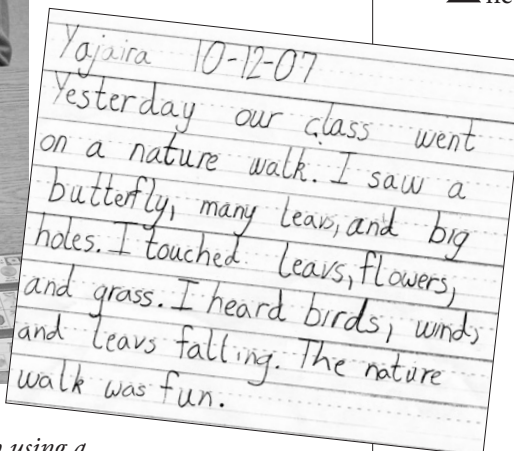 ne
Yajaira 10-12-07
Yesterday our class went
on a nature walk. I saw a
butterfly, many leavs, and big
holes. I touched leavs, flowers,
and grass. I heard birds, wind,
and leavs falling. The nature
walk was fun.
using a